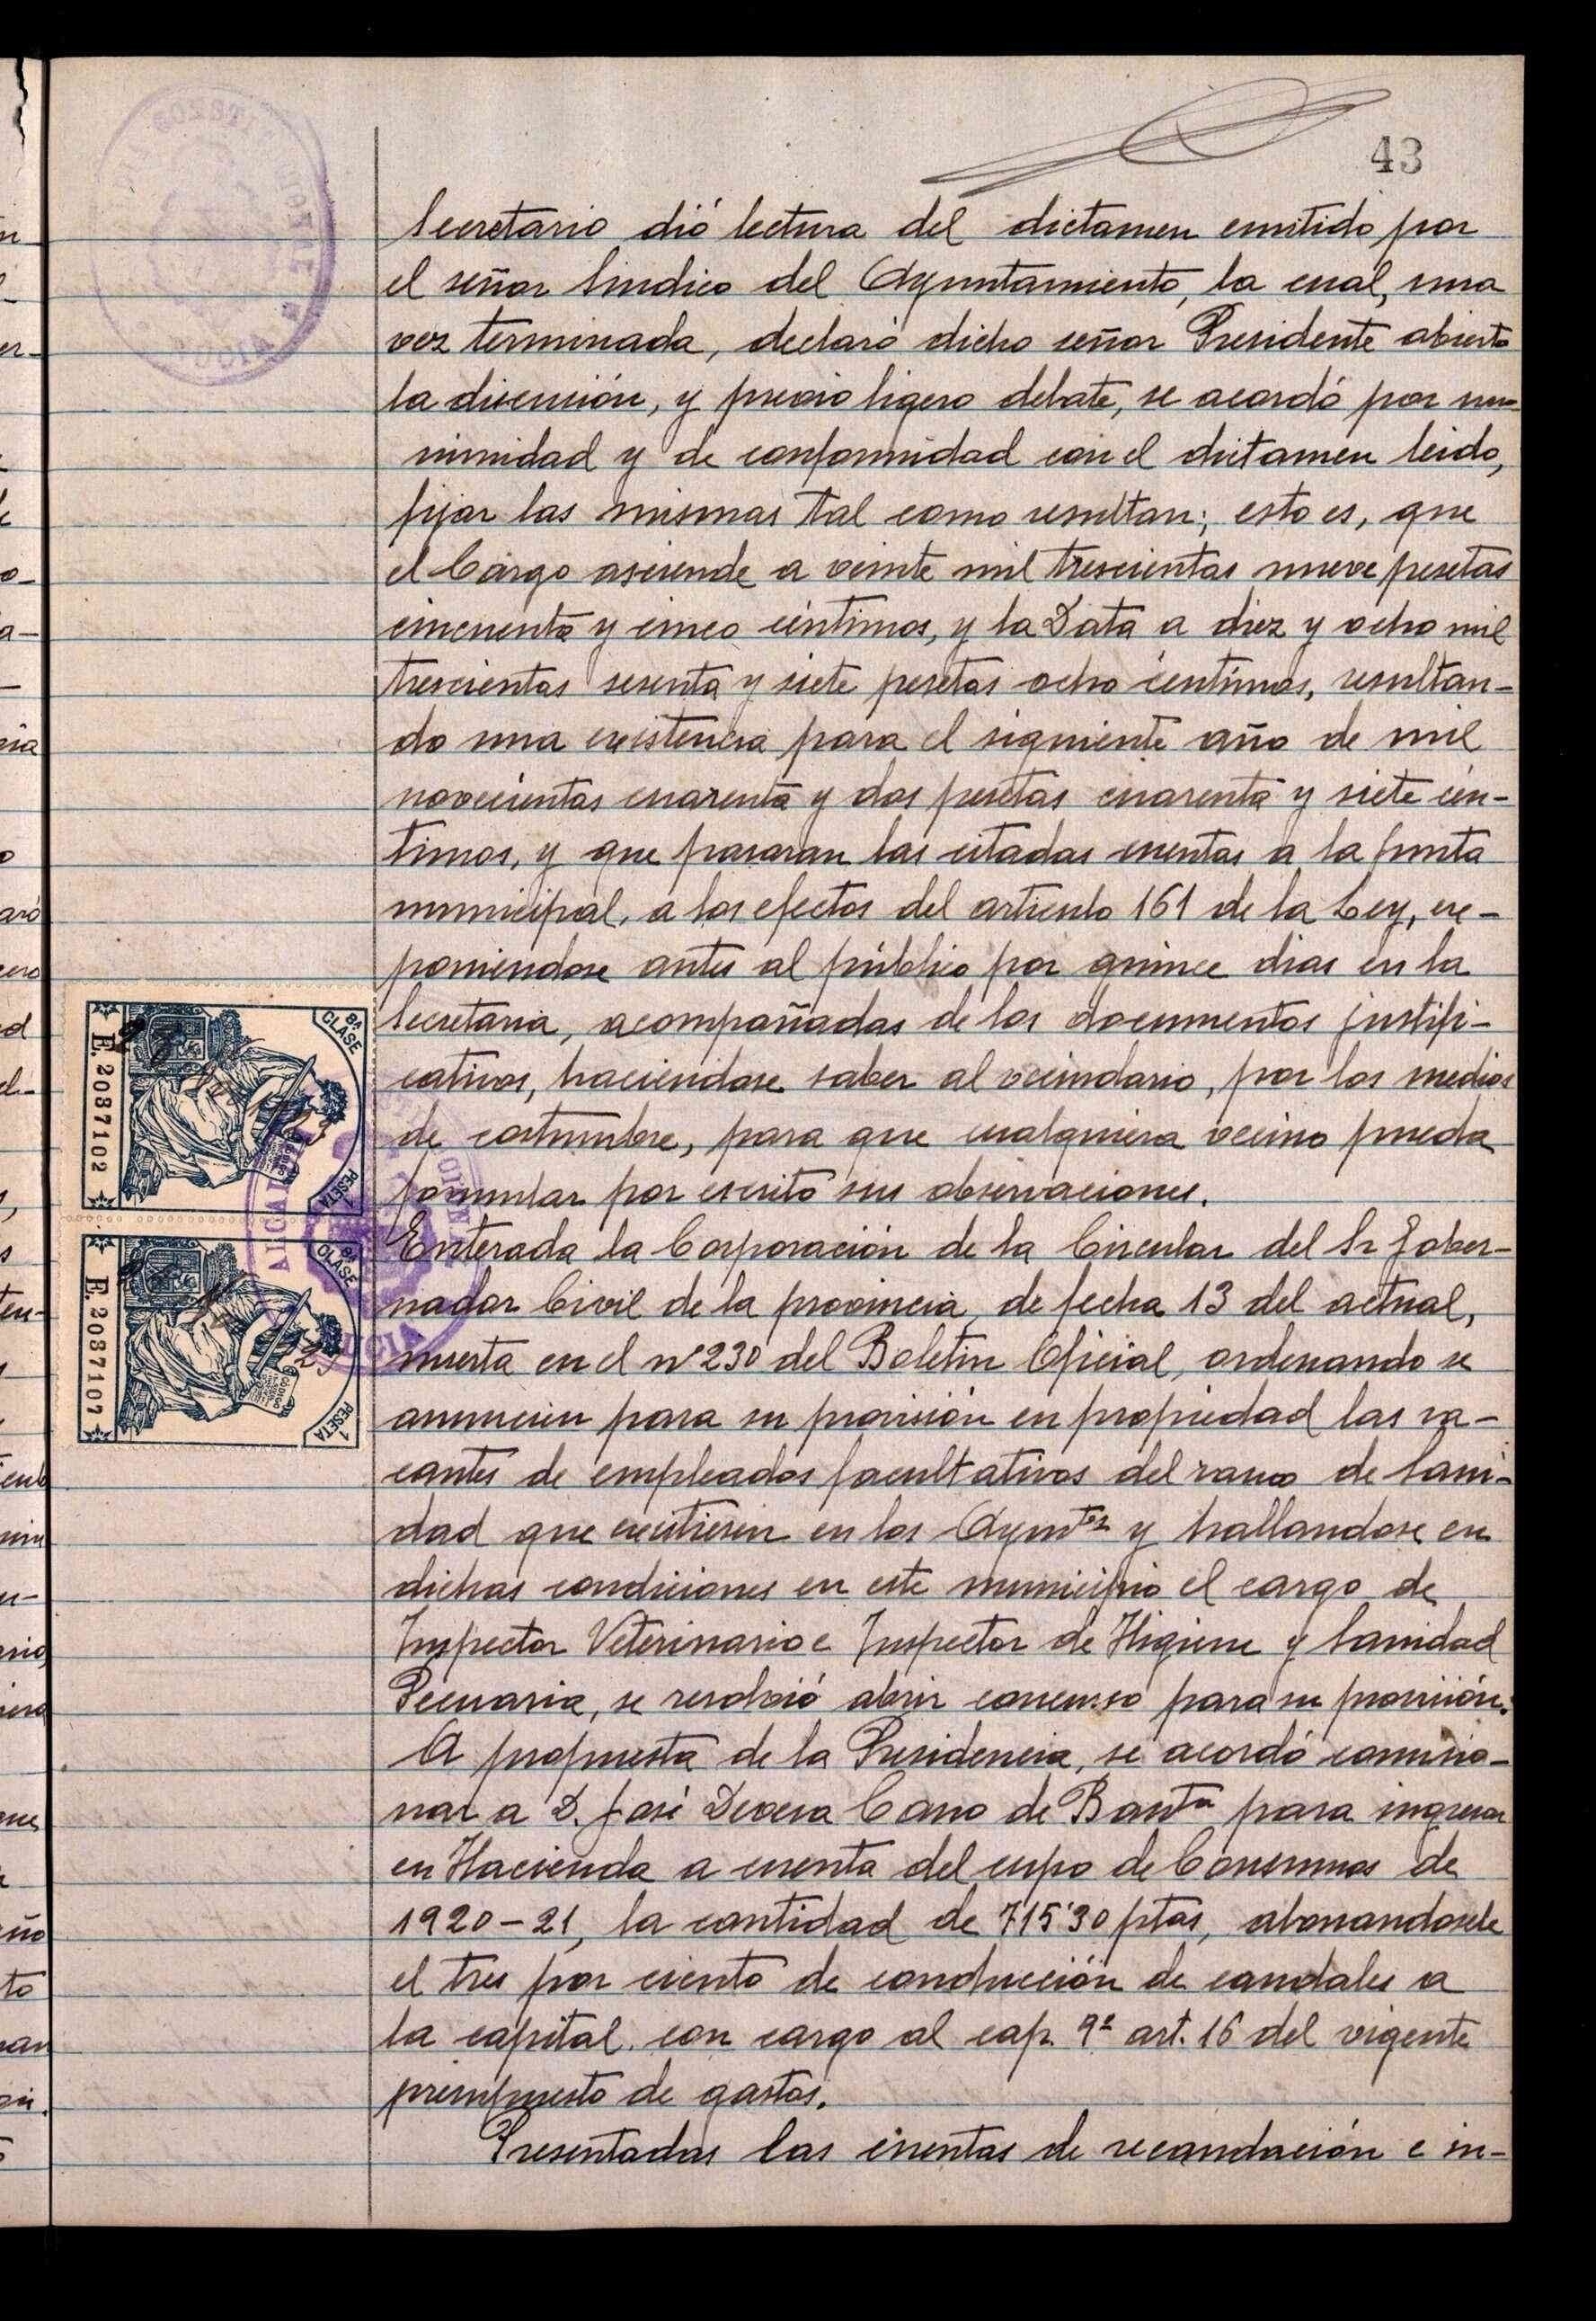 43
Secretario dió lectura del dictamen emitido por
el señor Sindico del Ayuntamiento, la cual, una
vez terminada, declaró dicho señor Presidente abierta
la discusión, y previo ligero debate, se acordó por una-
nimidad y de conformidad con el dictamen leido,
fijar las mismas tal como resultan; esto es, que
el Cargo asciende a veinte mil trescientas nueve pesetas
cincuenta y cinco céntimos, y la Data a diez y ocho mil
trescientas sesenta y siete pesetas ocho céntimos, resultan-
do una existencia para el siguiente año de mil
novecientas cuarenta y dos pesetas cuarenta y siete cén-
timos, y que pasaran las citadas cuentas a la Junta
municipal, a los efectos del artículo 161 de la Ley, ex-
poniendose antes al público por quince dias en la
Secretaria, acompañadas de los documentos justifi-
cativos, haciendose saber al vecindario, por los medios
de costumbre, para que cualquiera vecino pueda
formular por escrito sus observaciones.
Enterada la Corporación de la Circular del Sr Gober-
nador Civil de la provincia, de fecha 13 del actual,
inserta en el nº 230 del Boletin Oficial, ordenando se
anuncien para su provisión en propiedad las va-
cantes de empleados facultativos del ramo de Sani-
dad que existiesen en los Aymtos y hallandose en
dichas condiciones en este municipio el cargo de
Inspector Veterinario e Inspector de Higiene y Sanidad
Pecuaria, se resolvió abrir concurso para su provisión.
A propuesta de la Presidencia, se acordó comisio-
nar a D. José Devesa Cano de Banta para ingresar
en Hacienda a cuenta del cupo de Consumos de
1920-21, la cantidad de 715'30 ptas, abonandosele
el tres por ciento de conducción de caudales a
la capital con cargo al cap. 9º art. 16 del vigente
presupuesto de gastos.
Presentadas las cuentas de recaudación e in-
8ª CLASE
E. 2037102
1 PESETA
8ª CLASE
E. 2037107
1 PESETA